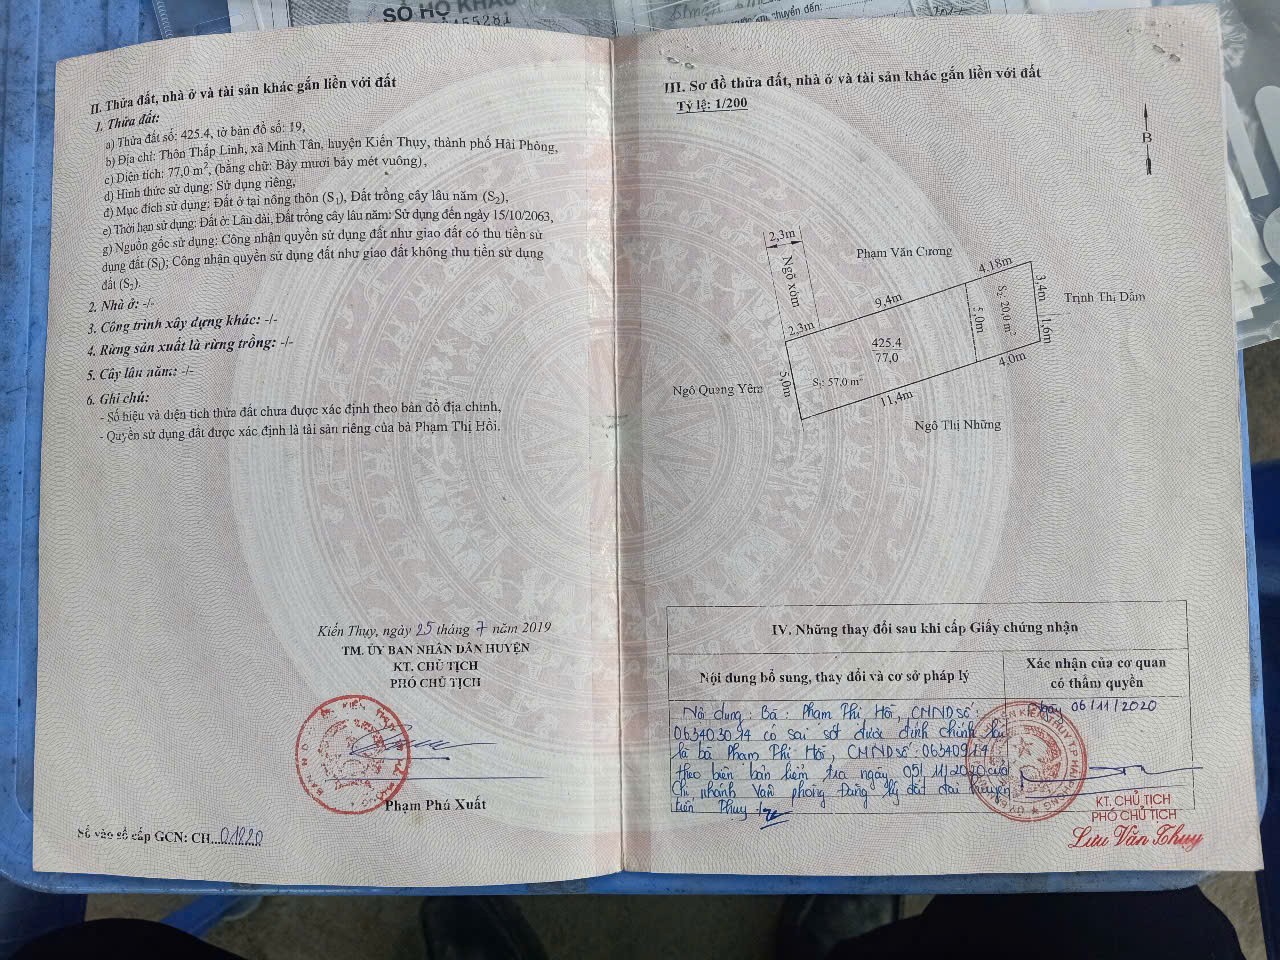 SỔ HỘ KHẨU
II. Thửa đất, nhà ở và tài sản khác gắn liền với đất
1. Thửa đất:
a) Thửa đất số: 425.4, tờ bản đồ số: 19,
b) Địa chỉ: Thôn Thấp Linh, xã Minh Tân, huyện Kiến Thụy, thành phố Hải Phòng,
c) Diện tích: 77,0 m², (bằng chữ: Bảy mươi bảy mét vuông),
d) Hình thức sử dụng: Sử dụng riêng,
đ) Mục đích sử dụng: Đất ở tại nông thôn (S₁), Đất trồng cây lâu năm (S₂),
e) Thời hạn sử dụng: Đất ở: Lâu dài, Đất trồng cây lâu năm: Sử dụng đến ngày 15/10/2063,
g) Nguồn gốc sử dụng: Công nhận quyền sử dụng đất như giao đất có thu tiền sử
dụng đất (S₁); Công nhận quyền sử dụng đất như giao đất không thu tiền sử dụng
đất (S₂).
2. Nhà ở: -/-
3. Công trình xây dựng khác: -/-
4. Rừng sản xuất là rừng trồng: -/-
5. Cây lâu năm: -/-
6. Ghi chú:
- Số hiệu và diện tích thửa đất chưa được xác định theo bản đồ địa chính,
- Quyền sử dụng đất được xác định là tài sản riêng của bà Phạm Thị Hồi.
Kiến Thụy, ngày 25 tháng 7 năm 2019
TM. ỦY BAN NHÂN DÂN HUYỆN
KT. CHỦ TỊCH
PHÓ CHỦ TỊCH
Phạm Phú Xuất
Số vào sổ cấp GCN: CH...01220
III. Sơ đồ thửa đất, nhà ở và tài sản khác gắn liền với đất
Tỷ lệ: 1/200
B
2,3m
Ngõ xóm
Phạm Văn Cương
4,18m
3,4m
Trịnh Thị Dầm
9,4m
S₂: 20,0 m²
5,0m
1,6m
2,3m
425.4
77,0
4,0m
Ngô Quang Yêm
5,0m
S₁: 57,0 m²
11,4m
Ngô Thị Những
IV. Những thay đổi sau khi cấp Giấy chứng nhận
Nội dung bổ sung, thay đổi và cơ sở pháp lý
Xác nhận của cơ quan
có thẩm quyền
Nội dung: Bà: Phạm Thị Hồi, CMND số:
063403094 có sai sót được đính chính lại
là bà Phạm Thị Hồi, CMND số:
theo biên bản kiểm tra ngày 05/11/2020 của
Chi nhánh Văn phòng Đăng ký đất đai huyện
Kiến Thụy ./.
Ngày 06/11/2020
KT. CHỦ TỊCH
PHÓ CHỦ TỊCH
Lưu Văn Thụy